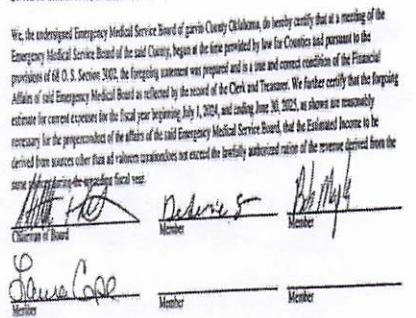 We, the undersigned Emergency Medical Service Board of garvin County Oklahoma, do hereby certify that at a meeting of the
Emergency Medical Service Board of the said County, begun at the time provided by law for Counties and pursuant to the
provisions of 68 O. S. Section 3002, the foregoing statement was prepared and is a true and correct condition of the Financial
Affairs of said Emergency Medical Board as reflected by the record of the Clerk and Treasurer. We further certify that the forgoing
estimate for current expenses for the fiscal year beginning July 1, 2024, and ending June 30, 2025, as shown are reasonably
necessary for the proper conduct of the affairs of the said Emergency Medical Service Board, that the Estimated Income to be
derived from sources other than ad valorem taxation does not exceed the lawfully authorized ration of the revenue derived from the
same during the fiscal year.
Chairman of Board Member Member
Laura
Member Member Member